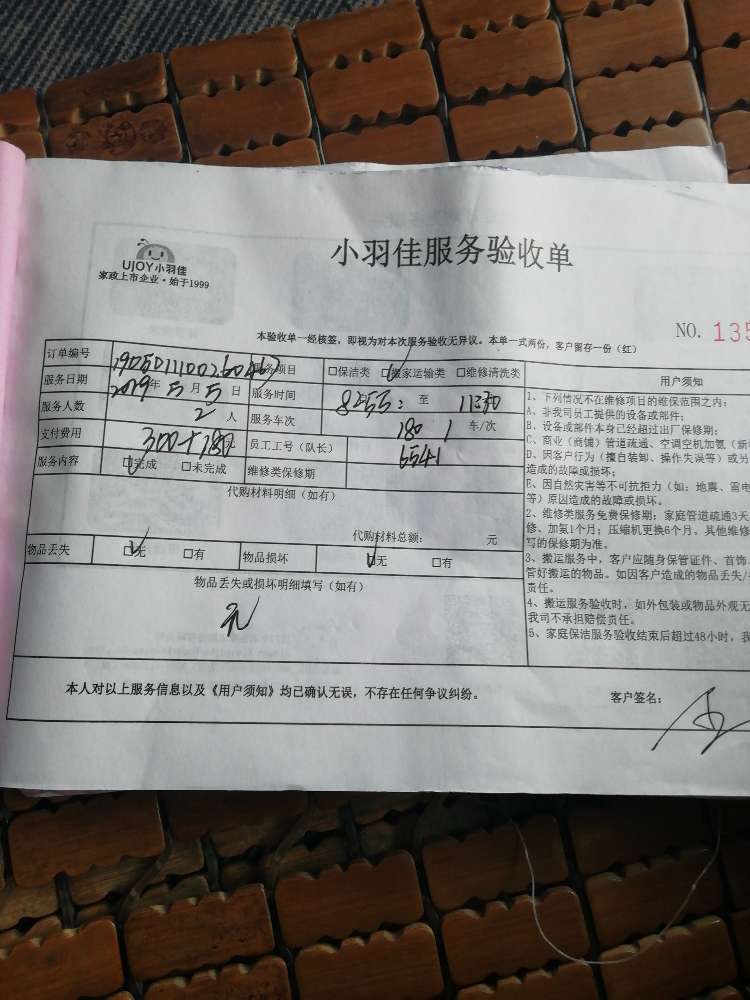 UJOY小羽佳
家政上市企业·始于1999
小羽佳服务验收单
NO. 135
本验收单一经核签，即视为对本次服务验收无异议。本单一式两份，客户留存一份（红）
订单编号 服务项目 □保洁类 □搬家运输类 □维修清洗类
服务日期 2019年5月5日 服务时间 8:55: 至 11:30
服务人数 2人 服务车次 180 1 车/次
支付费用 300+180元 员工工号（队长） 6541
服务内容 □完成 □未完成 维修类保修期
代购材料明细（如有）
代购材料总额： 元
物品丢失 □无 □有 物品损坏 □无 □有
物品丢失或损坏明细填写（如有）
无
用户须知
1、下列情况不在维修项目的维保范围之内：
A、非我司员工提供的设备或部件；
B、设备或部件本身已经超过出厂保修期；
C、商业（商铺）管道疏通、空调空机加氨（新
D、因客户行为（擅自装卸、操作失误等）或另
造成的故障或损坏；
E、因自然灾害等不可抗拒力（如：地震、雷电
等）原因造成的故障或损坏。
2、维修类服务免费保修期：家庭管道疏通3天
修、加氨1个月；压缩机更换6个月、其他维修
写的保修期为准。
3、搬运服务中，客户应随身保管证件、首饰、
管好搬运的物品。如因客户造成的物品丢失/
责任。
4、搬运服务验收时，如外包装或物品外观无
我司不承担赔偿责任。
5、家庭保洁服务验收结束后超过48小时，我
本人对以上服务信息以及《用户须知》均已确认无误，不存在任何争议纠纷。 客户签名：